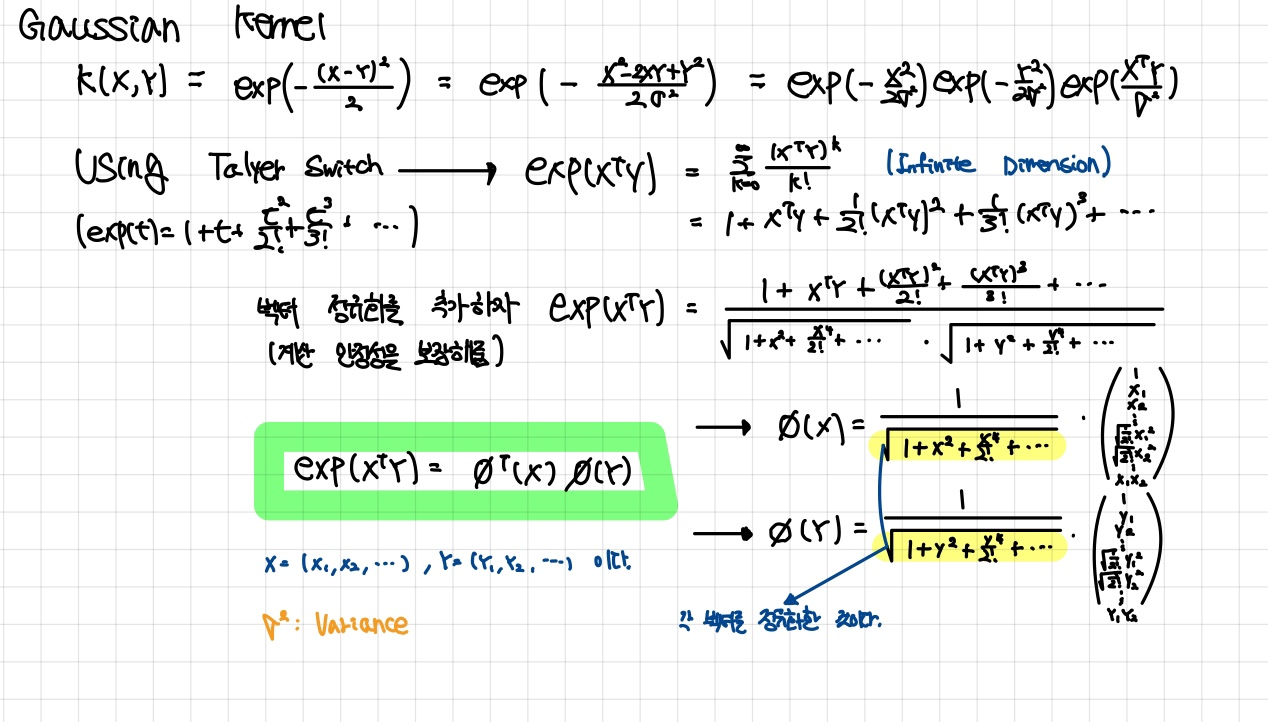 Gaussian Kernel
K(X,Y) = exp(-(X-Y)²/2) = exp(-(X²-2XY+Y²)/2σ²) = exp(-X²/2σ²) exp(-Y²/2σ²) exp(XᵀY/σ²)
Using Talyer Switch → exp(XᵀY) = Σ_{k=0}^{∞} (XᵀY)^k/k! (Infinite Dimension)
(exp(t)=1+t+t²/2!+t³/3!+ ⋯) = 1+XᵀY+1/2!(XᵀY)²+1/3!(XᵀY)³+ ⋯
벡터 정규화를 추가하자 exp(XᵀY) = (1+XᵀY+(XᵀY)²/2!+(XᵀY)³/3!+ ⋯)/(√(1+X²+X⁴/2!+ ⋯) · √(1+Y²+Y⁴/2!+ ⋯))
(계산 안정성을 보장해줌)
→ ø(X)= 1/√(1+X²+X⁴/2!+ ⋯) · (1 X₁ X₂ ⋮ √(1/2!)X₁² √(1/2!)X₂² ⋮ X₁X₂)
exp(XᵀY)= øᵀ(X) ø(Y)
→ ø(Y)= 1/√(1+Y²+Y⁴/2!+ ⋯) · (1 Y₁ Y₂ ⋮ √(1/2!)Y₁² √(1/2!)Y₂² ⋮ Y₁Y₂)
X=(X₁,X₂,⋯) , Y=(Y₁,Y₂,⋯) 이다.
σ²: Variance
각 벡터를 정규화한 것이다.